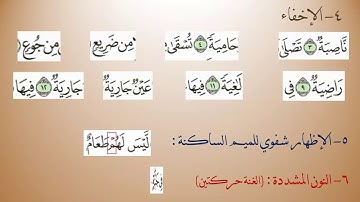 ٤- الإخفاء
نَّاصِبَةٌ ٣ تَصْلَىٰ حَامِيَةً ٤ تُسْقَىٰ مِن ضَرِيعٍ مِن جُوعٍ
رَاضِيَةٌ ٩ فِي لَاغِيَةً ١١ فِيهَا عَيْنٌ جَارِيَةٌ جَارِيَةٌ ١٢ فِيهَا
٥- الإظهار شفوي للميم الساكنة : لَّيْسَ لَهُمْ طَعَامٌ
٦- النون المشددة : (الغنة حركتين)